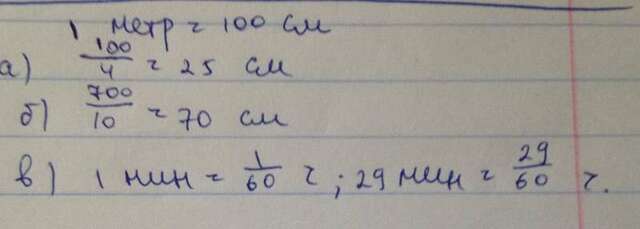 1 метр = 100 см
а) 100/4 = 25 см
б) 700/10 = 70 см
в) 1 мин = 1/60 ч; 29 мин = 29/60 ч.